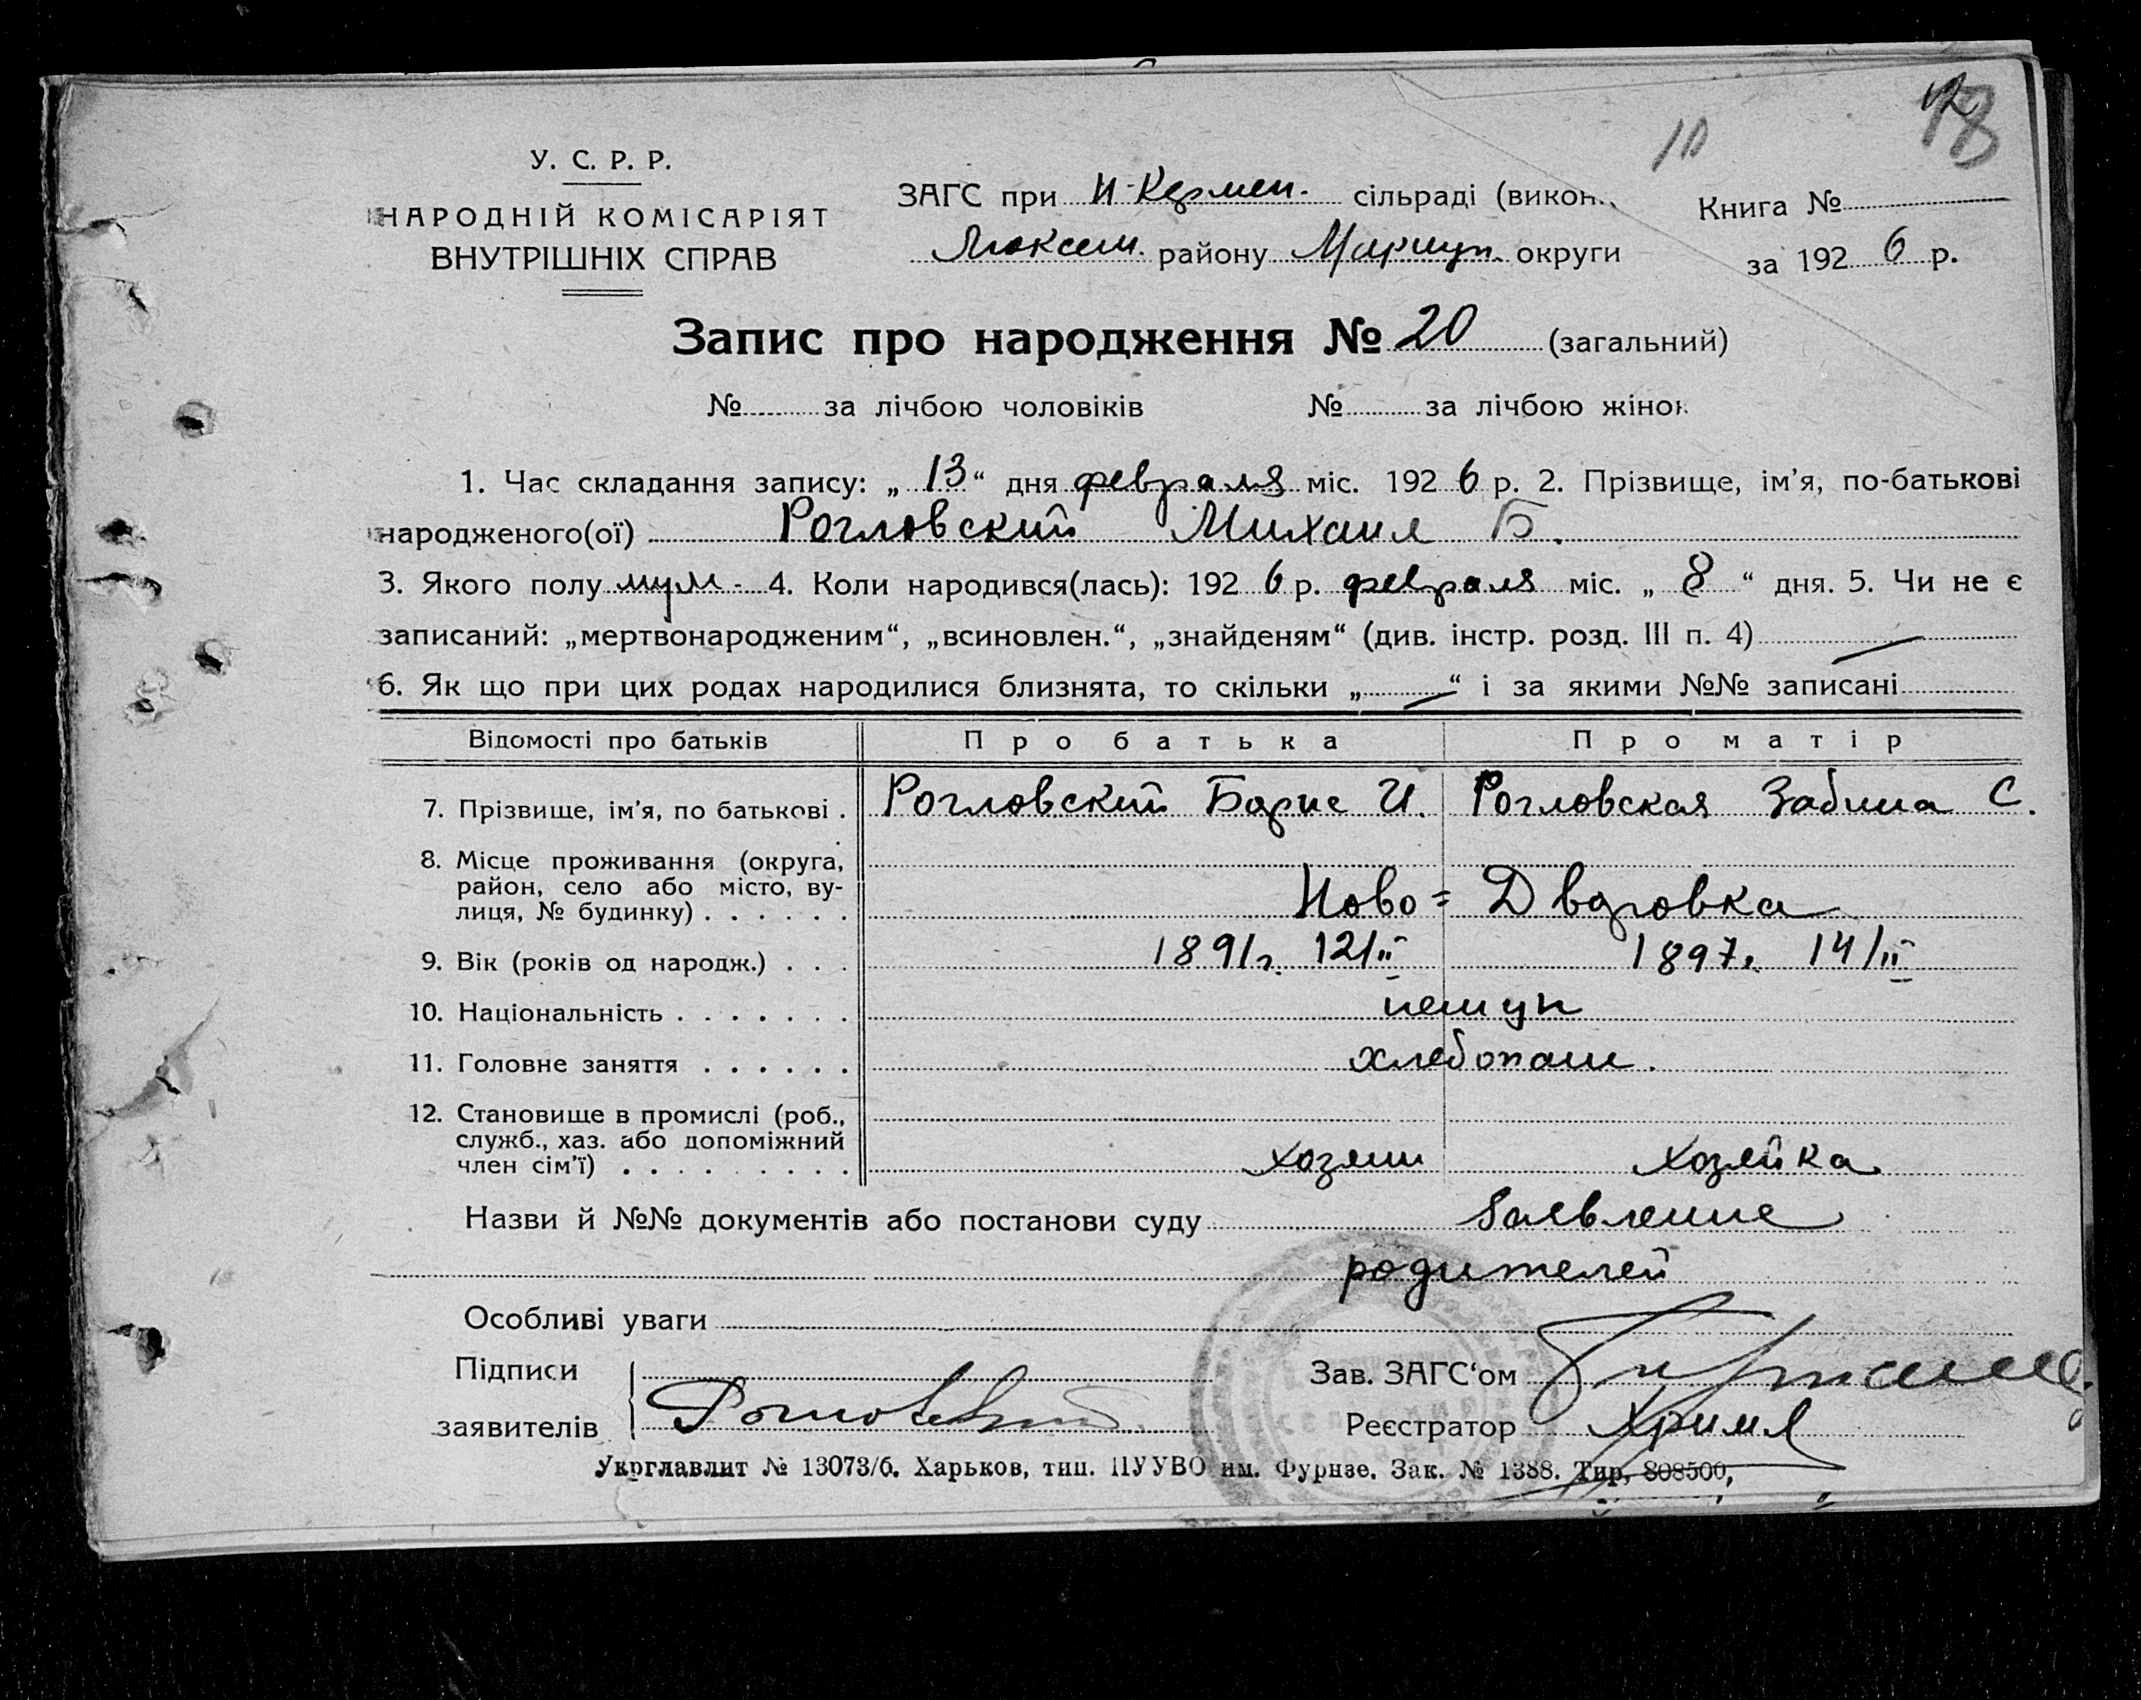 18
10
У. С. Р. Р.
НАРОДНІЙ КОМІСАРІЯТ
ВНУТРІШНІХ СПРАВ
ЗАГС при Н-Кермен. сільраді (викон.
Люксем. району Мариуп. округи
Книга №
за 1926 р.
Запис про народження № 20 (загальний)
№ за лічбою чоловіків № за лічбою жінок
1. Час складання запису: „13“ дня февраля міс. 1926 р. 2. Прізвище, ім’я, по-батькові
народженого(ої) Рогловский Михаил Б.
3. Якого полу муж- 4. Коли народився(лась): 1926 р. февраля міс. „8“ дня. 5. Чи не є
записаний: „мертвонародженим“, „всиновлен.“, „знайденям“ (див. інстр. розд. III п. 4) —
6. Як що при цих родах народилися близнята, то скільки „—“ і за якими №№ записані
Відомості про батьків Про батька Про матір
7. Прізвище, ім’я, по батькові . Рогловский Борис И. Рогловская Забина С.
8. Місце проживання (округа,
район, село або місто, ву-
лиця, № будинку) . . . . . . Ново= Дворовка
9. Вік (років од народж.) . . . 1891г. 12/II 1897г. 14/II
10. Національність . . . . . . .
11. Головне заняття . . . . . . хлебопаш.
12. Становище в промислі (роб.,
служб., хаз. або допоміжний
член сім’ї) . . . . . . . . . хозяин хозяйка
Назви й №№ документів або постанови суду Заявление
родителей
Особливі уваги
Підписи
заявителів Рогловский
Зав. ЗАГС‘ом
Реєстратор
Укрглавлит № 13073/б. Харьков, тип. ПУУВО им. Фурнзе. Зак. № 1388. Тир. 808500,